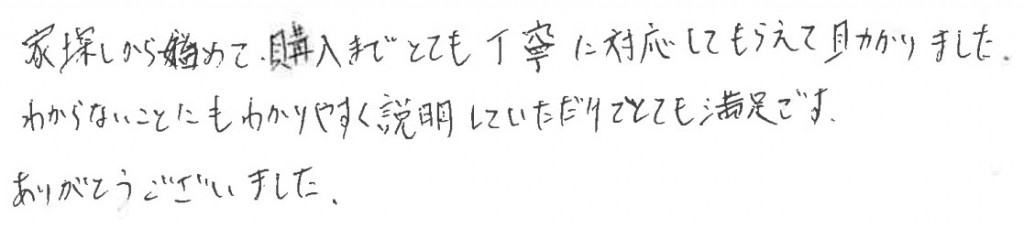 家探しから始めて、購入までとても丁寧に対応してもらえて助かりました。
わからないことにもわかりやすく説明していただけてとても満足です。
ありがとうございました。